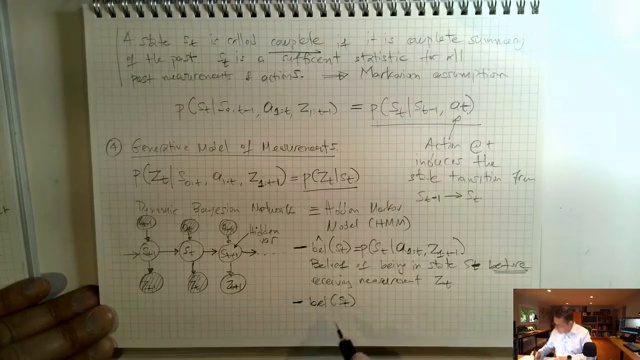 A state St is called complete if it is complete summary
of the past St is a sufficent statistic for all
past measurements & actions. ⟹ Markovian assumption
p(St|S0:t-1, a1:t, Z1:t-1) = p(St|St-1, at)
Action @ t
induces the
state transition from
St-1 → St
④ Generative Model of Measurements
p(Zt|S0:t, a1:t, Z1:t-1) = p(Zt|St)
Dynamic Bayesian Networks ≡ Hidden Markov
Model (HMM)
at-1 at at+1 Hidden
var
St-1 St St+1 ...
Zt-1 Zt Zt+1
- bel(St) = p(St|a1:t, Z1:t-1)
Belief of being in state St before
receiving measurement Zt
- bel(St)